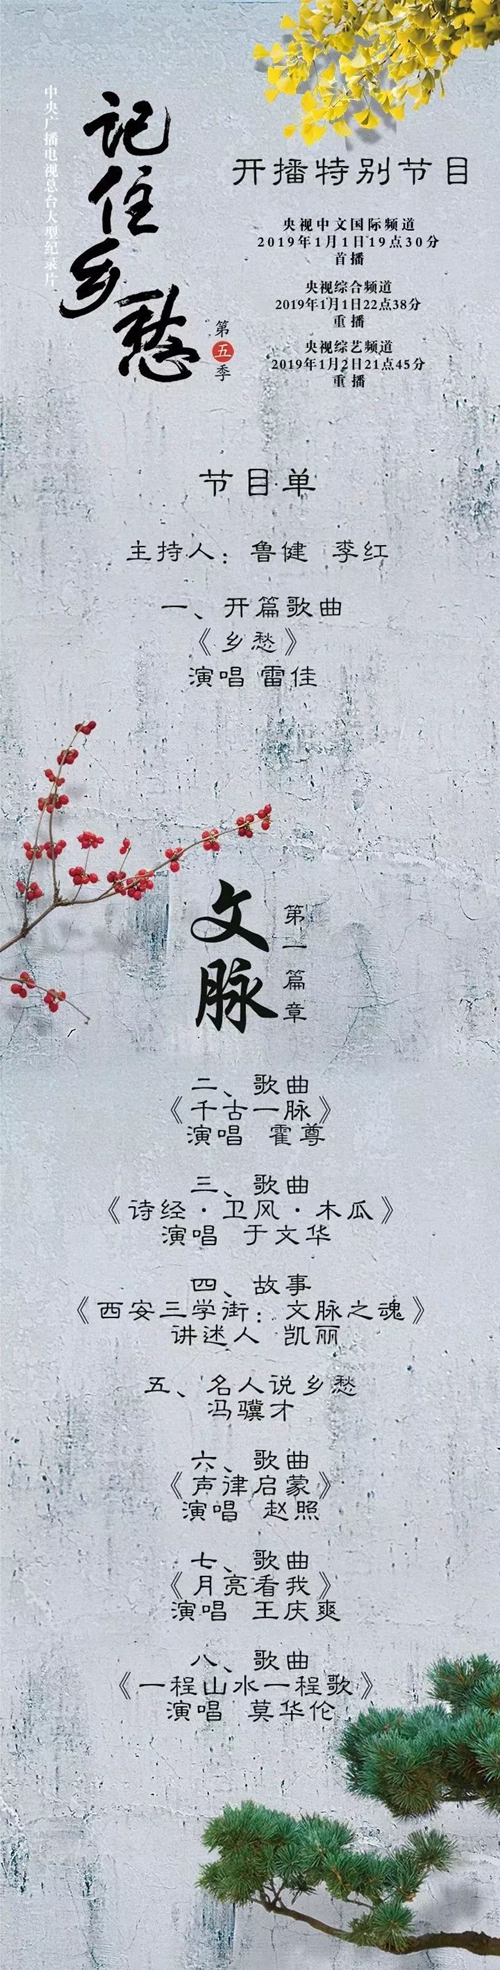 中央广播电视总台大型纪录片
记住乡愁
第五季
开播特别节目
央视中文国际频道
2019年1月1日19点30分
首播
央视综合频道
2019年1月1日22点38分
重播
央视综艺频道
2019年1月2日21点45分
重播
节目单
主持人：鲁健 李红
一、开篇歌曲
《乡愁》
演唱 雷佳
文脉
第一篇章
二、歌曲
《千古一脉》
演唱 霍尊
三、歌曲
《诗经·卫风·木瓜》
演唱 于文华
四、故事
《西安三学街：文脉之魂》
讲述人 凯丽
五、名人说乡愁
冯骥才
六、歌曲
《声律启蒙》
演唱 赵照
七、歌曲
《月亮看我》
演唱 王庆爽
八、歌曲
《一程山水一程歌》
演唱 莫华伦